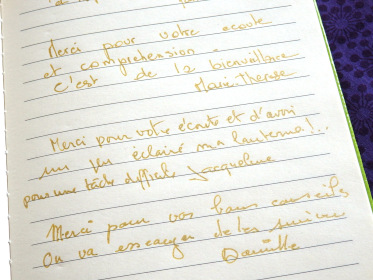 Merci pour votre écoute
et compréhension
c'est de la bienveillance
Marie Thérèse
Merci pour votre écoute et d'avoir
un peu éclairé ma lanterne!..
pour une tâche difficile Jacqueline
Merci pour vos bons conseils
On va essayer de les suivre
Danielle